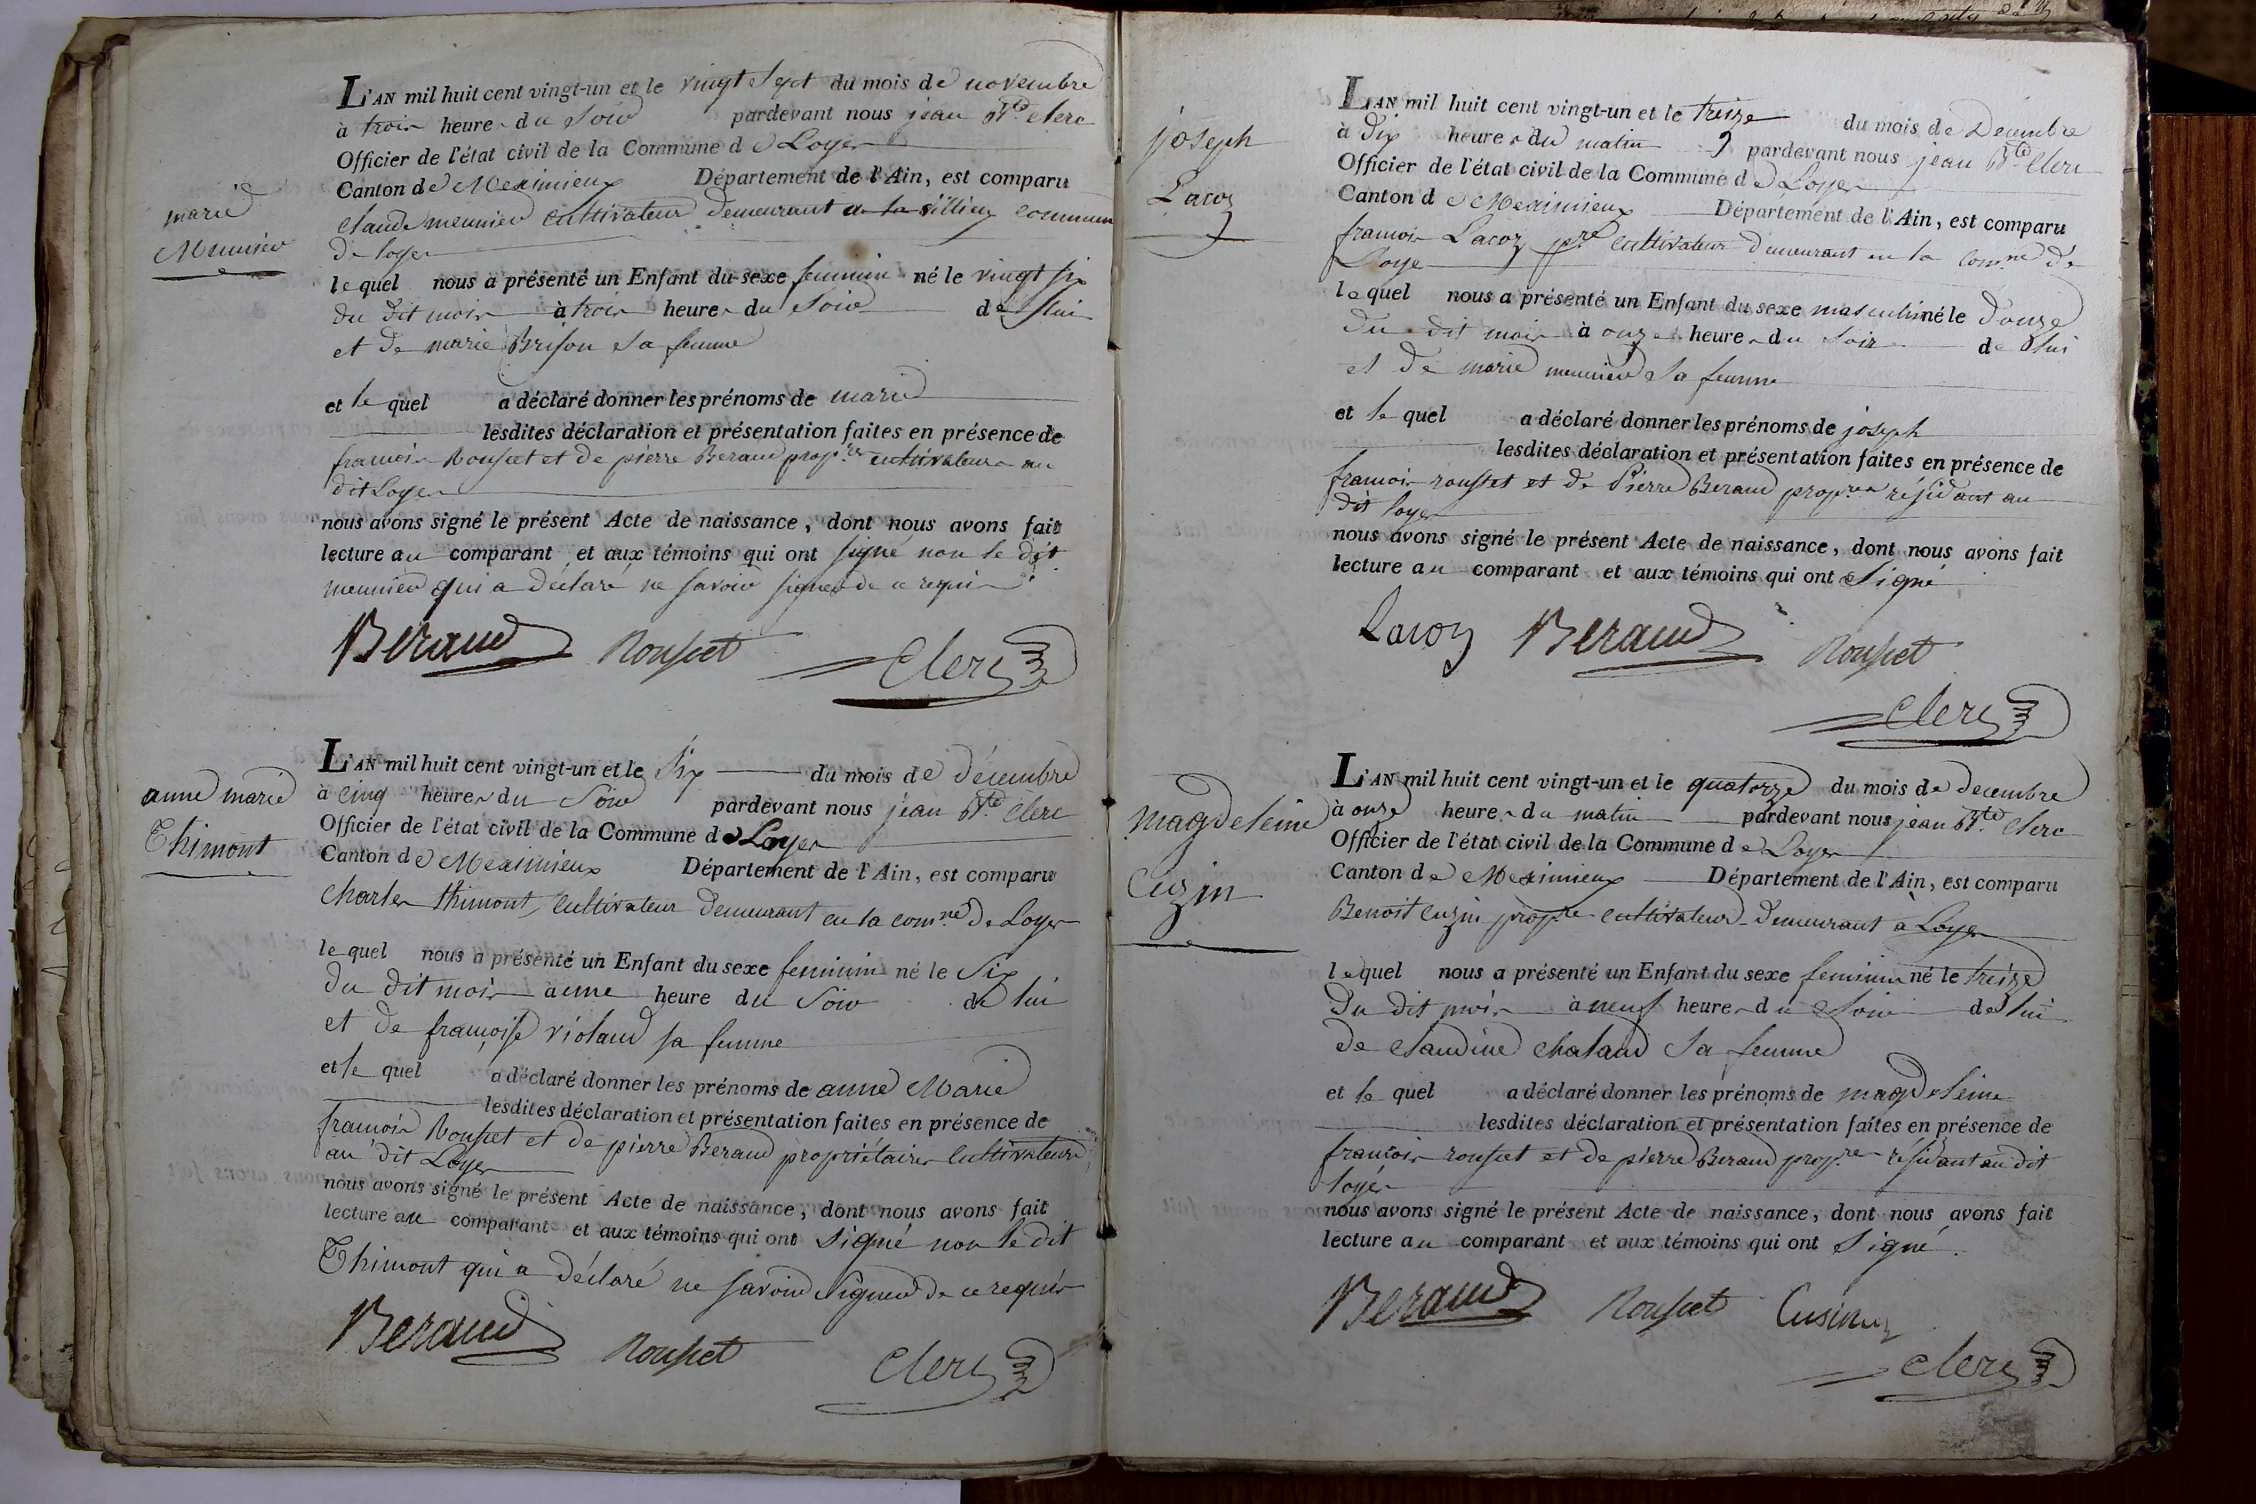 marie
Meunier
L'AN mil huit cent vingt-un et le vingt Sept du mois de novembre
à trois heures du Soir pardevant nous jean Bte clerc
Officier de l'état civil de la Commune de Loyes
Canton de Meximieux Département de l'Ain, est comparu
claude meunier cultivateur demeurant a la villieu commune
De loyes
lequel nous a présenté un Enfant du sexe feminin né le vingt six
du dit mois à trois heures du Soir de lui
et de marie Brison sa femme
et le quel a déclaré donner les prénoms de marie
lesdites déclaration et présentation faites en présence de
francois Rousset et de pierre Beraud propres cultivateurs au
dit Loyes
nous avons signé le présent Acte de naissance, dont nous avons fait
lecture au comparant et aux témoins qui ont signé non le dit
meunier qui a déclaré ne savoir signer de ce requis
Beraud Rousset Clerc
anne marie
Thimont
L'AN mil huit cent vingt-un et le Six du mois de décembre
à cinq heures du Soir pardevant nous jean Bte Clerc
Officier de l'état civil de la Commune de Loyes
Canton de Meximieux Département de l'Ain, est comparu
Charles thimont, cultivateur demeurant en la comne de Loyes
lequel nous a présenté un Enfant du sexe feminin né le Six
du dit mois a une heure du Soir de lui
et de françoise violaud sa femme
et le quel a déclaré donner les prénoms de anne Marie
lesdites déclaration et présentation faites en présence de
francois Rousset et de pierre Beraud propriétaires cultivateurs
au dit Loyes
nous avons signé le présent Acte de naissance, dont nous avons fait
lecture au comparant et aux témoins qui ont signé non le dit
Thimont qui a déclaré ne savoir signer de ce requis
Beraud Rousset Clerc
joseph
Lacoz
L'AN mil huit cent vingt-un et le treize du mois de Décembre
à dix heures du matin pardevant nous jean Bte Clerc
Officier de l'état civil de la Commune de Loyes
Canton de Meximieux Département de l'Ain, est comparu
francois Lacoz pre cultivateur demeurant en la comne de
Loye
lequel nous a présenté un Enfant du sexe masculin né le douze
du dit mois à onze heures du soir de lui
et de marie meunier sa femme
et le quel a déclaré donner les prénoms de joseph
lesdites déclaration et présentation faites en présence de
francois rousset et de Pierre Beraud propres résidant au
dit loyes
nous avons signé le présent Acte de naissance, dont nous avons fait
lecture au comparant et aux témoins qui ont Signé
Lacoz Beraud Rousset
Clerc
magdeleine
Cuzin
L'AN mil huit cent vingt-un et le quatorze du mois de decembre
à onze heures du matin pardevant nous jean Bte Clerc
Officier de l'état civil de la Commune de Loyes
Canton de Meximieux Département de l'Ain, est comparu
Benoit Cuzin propre cultivateur demeurant à Loyes
lequel nous a présenté un Enfant du sexe feminin né le treize
du dit mois à neuf heures du Soir de lui
de claudine chaland sa femme
et le quel a déclaré donner les prénoms de magdeleine
lesdites déclaration et présentation faites en présence de
francois rousset et de pierre Beraud propres résidant au dit
loyes
nous avons signé le présent Acte de naissance, dont nous avons fait
lecture au comparant et aux témoins qui ont Signé.
Beraud Rousset Cusin
Clerc